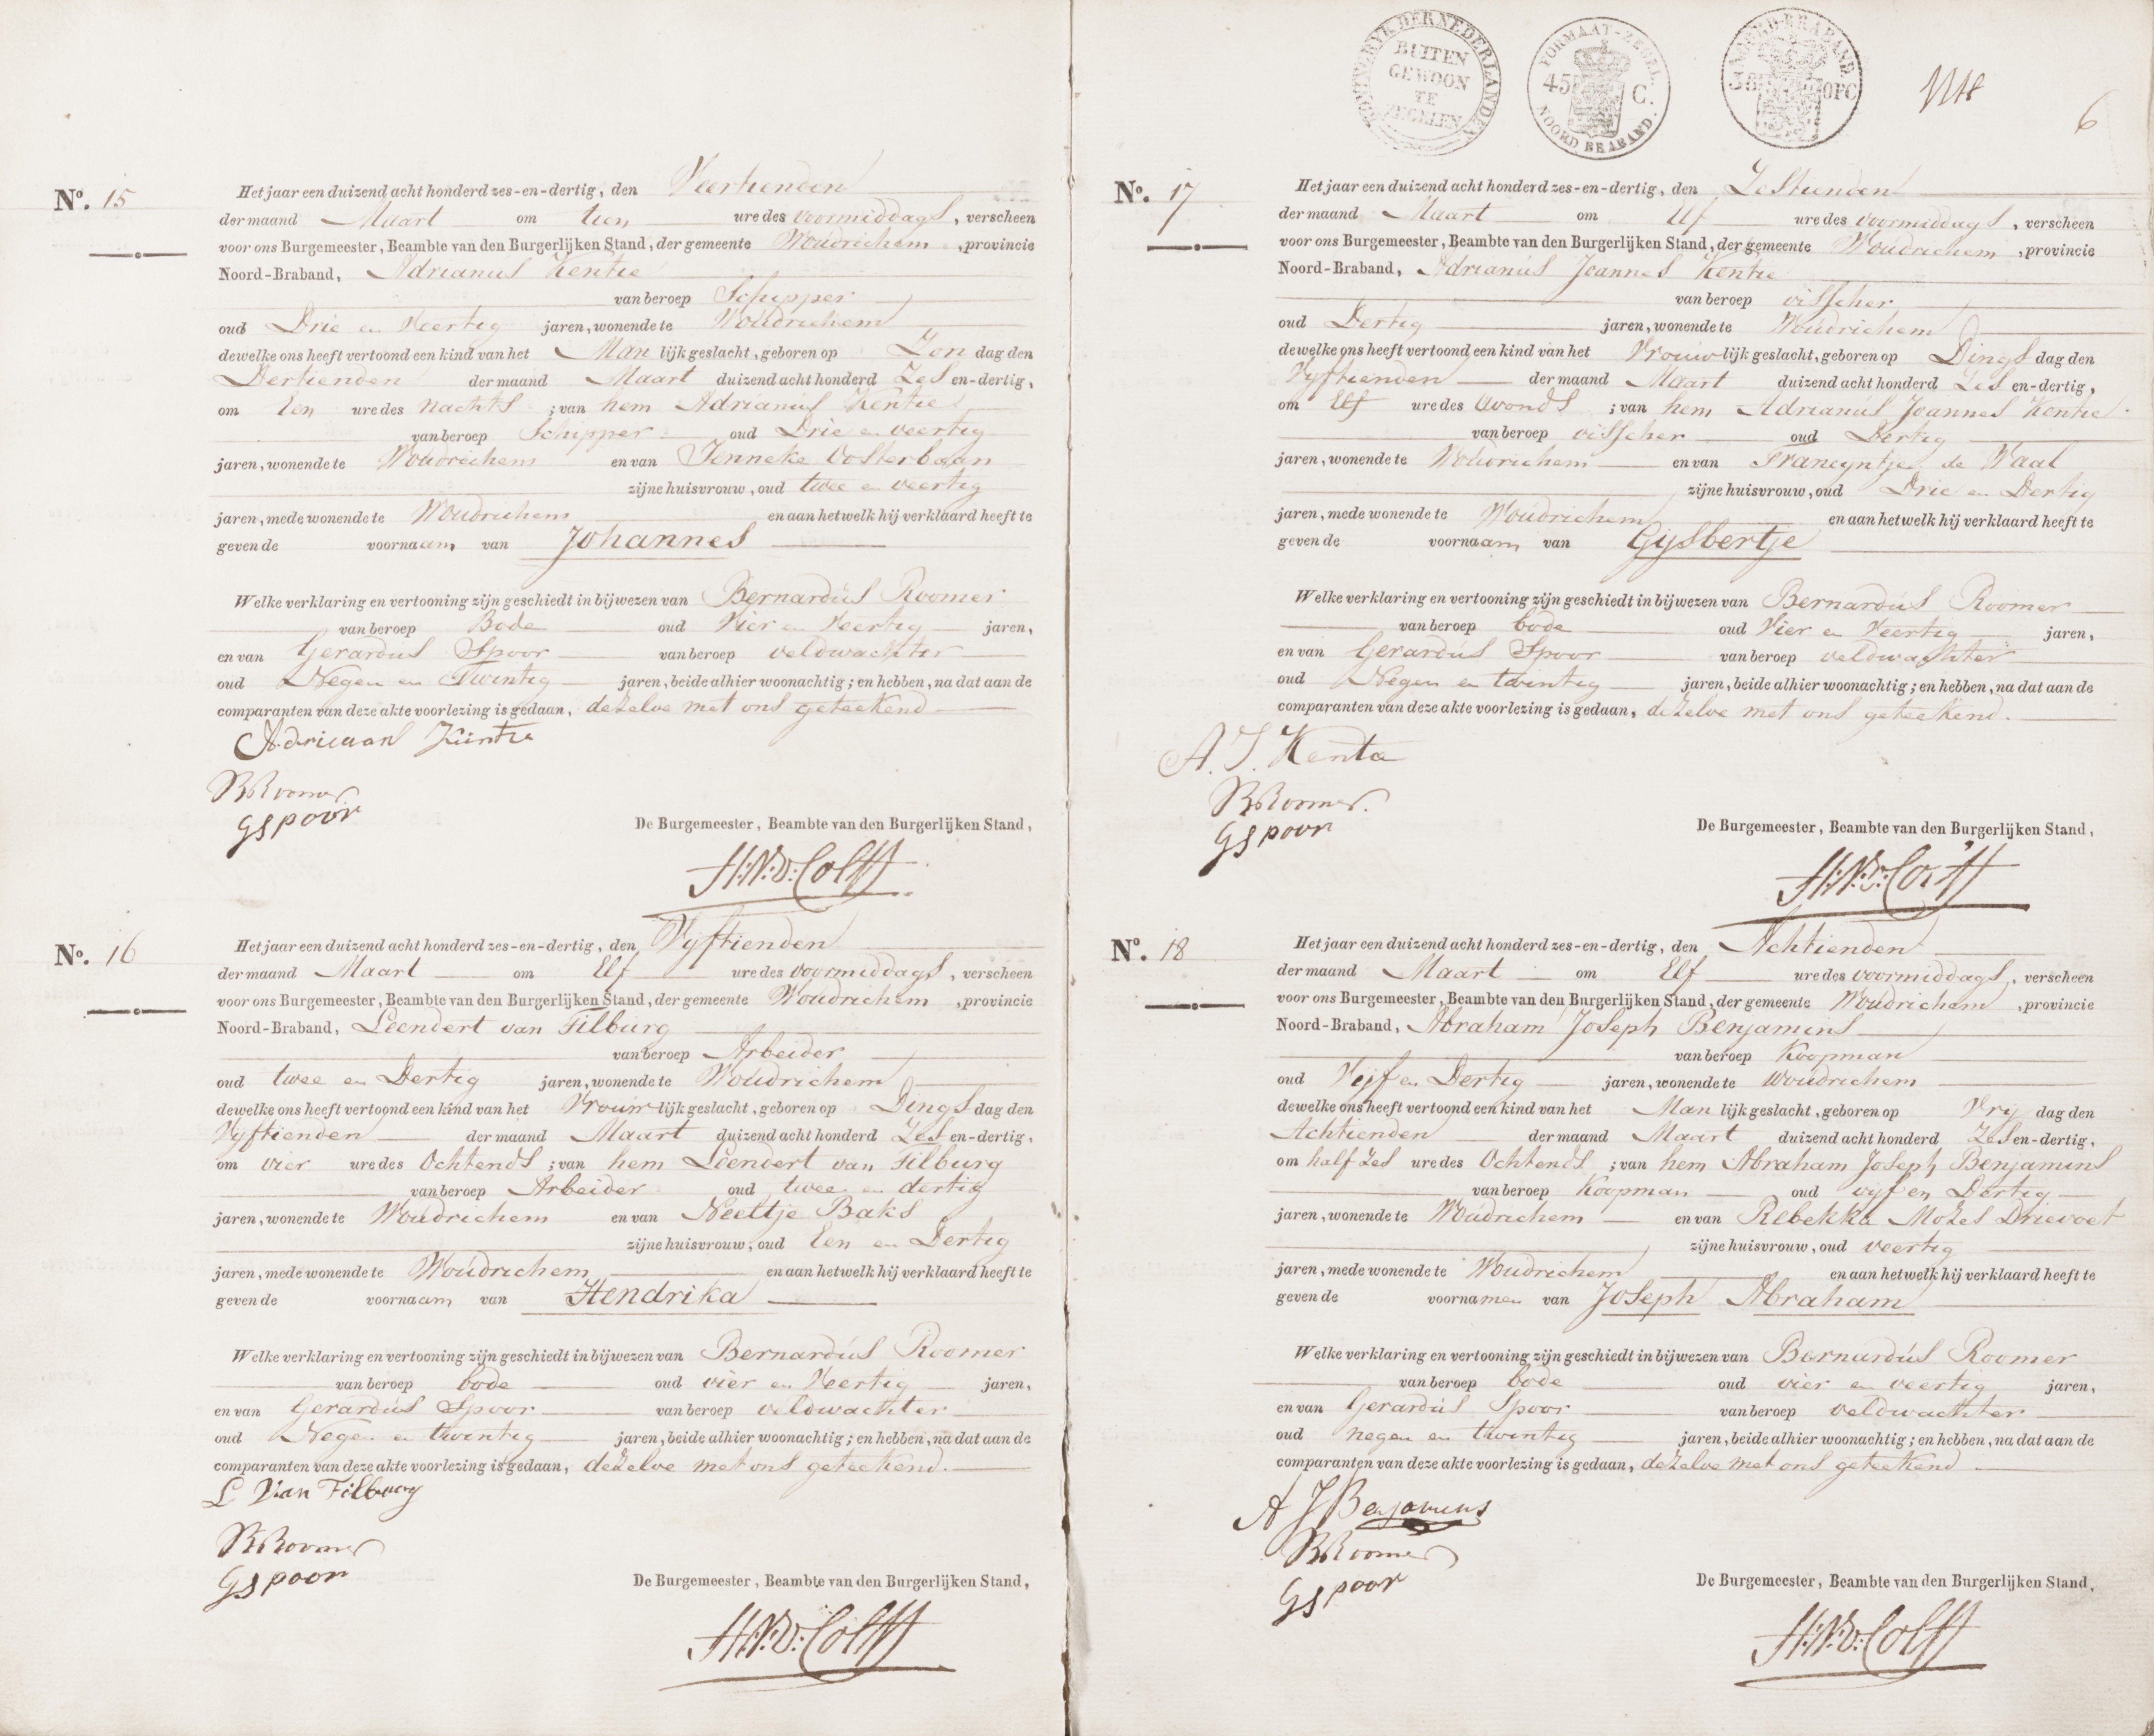 No. 15
Het jaar een duizend acht honderd zes-en-dertig, den Veertienden
der maand Maart om tien ure des voormiddags, verscheen
voor ons Burgemeester, Beambte van den Burgerlijken Stand, der gemeente Woudrichem, provincie
Noord-Braband, Adrianus Kentie
van beroep Schipper
oud Drie en Veertig jaren, wonende te Woudrichem
dewelke ons heeft vertoond een kind van het Man lijk geslacht, geboren op Zon dag den
Dertienden der maand Maart duizend acht honderd Zes en-dertig,
om Een ure des nachts ; van hem Adrianus Kentie
van beroep Schipper oud Drie en veertig
jaren, wonende te Woudrichem en van Jenneke Oosterbaan
zijne huisvrouw, oud twee en veertig
jaren, mede wonende te Woudrichem en aan hetwelk hij verklaard heeft te
geven de voornaam van Johannes
Welke verklaring en vertooning zijn geschiedt in bijwezen van Bernardus Roomer
van beroep Bode oud Vier en Veertig jaren,
en van Gerardus Spoor van beroep veldwachter
oud Negen en Twintig jaren, beide alhier woonachtig; en hebben, na dat aan de
comparanten van deze akte voorlezing is gedaan, dezelve met ons geteekend
Adriaan Kintie
B Roomer
G Spoor
De Burgemeester, Beambte van den Burgerlijken Stand,
No. 16
Het jaar een duizend acht honderd zes-en-dertig, den Vyftienden
der maand Maart om Elf ure des voormiddags, verscheen
voor ons Burgemeester, Beambte van den Burgerlijken Stand, der gemeente Woudrichem, provincie
Noord-Braband, Leendert van Tilburg
van beroep Arbeider
oud twee en Dertig jaren, wonende te Woudrichem
dewelke ons heeft vertoond een kind van het Vrouw lijk geslacht, geboren op Dings dag den
Vyftienden der maand Maart duizend acht honderd Zes en-dertig,
om vier ure des Ochtends ; van hem Leendert van Tilburg
van beroep Arbeider oud twee en dertig
jaren, wonende te Woudrichem en van Neeltje Baks
zijne huisvrouw, oud Een en Dertig
jaren, mede wonende te Woudrichem en aan hetwelk hij verklaard heeft te
geven de voornaam van Hendrika
Welke verklaring en vertooning zijn geschiedt in bijwezen van Bernardus Roomer
van beroep bode oud vier en Veertig jaren,
en van Gerardus Spoor van beroep veldwachter
oud Negen en twintig jaren, beide alhier woonachtig; en hebben, na dat aan de
comparanten van deze akte voorlezing is gedaan, dezelve met ons geteekend.
L Van Tilburg
B Roomer
G Spoor
De Burgemeester, Beambte van den Burgerlijken Stand,
KONINGRYK DER NEDERLANDEN
BUITEN
GEWOON
TE
ZEGELEN
FORMAAT-ZEGEL
45 C.
NOORD BRABAND.
NOORD-BRABAND.
38 OPC
6
No. 17
Het jaar een duizend acht honderd zes-en-dertig, den Zestienden
der maand Maart om Elf ure des voormiddags, verscheen
voor ons Burgemeester, Beambte van den Burgerlijken Stand, der gemeente Woudrichem, provincie
Noord-Braband, Adrianus Joannes Kentie
van beroep visscher
oud Dertig jaren, wonende te Woudrichem
dewelke ons heeft vertoond een kind van het Vrouw lijk geslacht, geboren op Dings dag den
Vyftienden der maand Maart duizend acht honderd Zes en-dertig,
om Elf ure des Avonds ; van hem Adrianus Joannes Kentie
van beroep visscher oud Dertig
jaren, wonende te Woudrichem en van Francyntje de Waal
zijne huisvrouw, oud Drie en Dertig
jaren, mede wonende te Woudrichem en aan hetwelk hij verklaard heeft te
geven de voornaam van Gysbertje
Welke verklaring en vertooning zijn geschiedt in bijwezen van Bernardus Roomer
van beroep bode oud Vier en Veertig jaren,
en van Gerardus Spoor van beroep veldwachter
oud Negen en twintig jaren, beide alhier woonachtig; en hebben, na dat aan de
comparanten van deze akte voorlezing is gedaan, dezelve met ons geteekend.
A. J. Kenta
B Roomer.
G Spoor
De Burgemeester, Beambte van den Burgerlijken Stand,
No. 18
Het jaar een duizend acht honderd zes-en-dertig, den Achtienden
der maand Maart om Elf ure des voormiddags, verscheen
voor ons Burgemeester, Beambte van den Burgerlijken Stand, der gemeente Woudrichem, provincie
Noord-Braband, Abraham Joseph Benjamins
van beroep Koopman
oud Vijf en Dertig jaren, wonende te Woudrichem
dewelke ons heeft vertoond een kind van het Man lijk geslacht, geboren op Vry dag den
Achtienden der maand Maart duizend acht honderd Zes en-dertig,
om half Zes ure des Ochtends ; van hem Abraham Joseph Benjamins
van beroep Koopman oud vyf en Dertig
jaren, wonende te Woudrichem en van Rebekka Mozes Drievoet
zijne huisvrouw, oud veertig
jaren, mede wonende te Woudrichem en aan hetwelk hij verklaard heeft te
geven de voornamen van Joseph Abraham
Welke verklaring en vertooning zijn geschiedt in bijwezen van Bernardus Roomer
van beroep bode oud vier en veertig jaren,
en van Gerardus Spoor van beroep veldwachter
oud negen en twintig jaren, beide alhier woonachtig; en hebben, na dat aan de
comparanten van deze akte voorlezing is gedaan, dezelve met ons geteekend
A J Benjamins
B Roomer
G Spoor
De Burgemeester, Beambte van den Burgerlijken Stand,